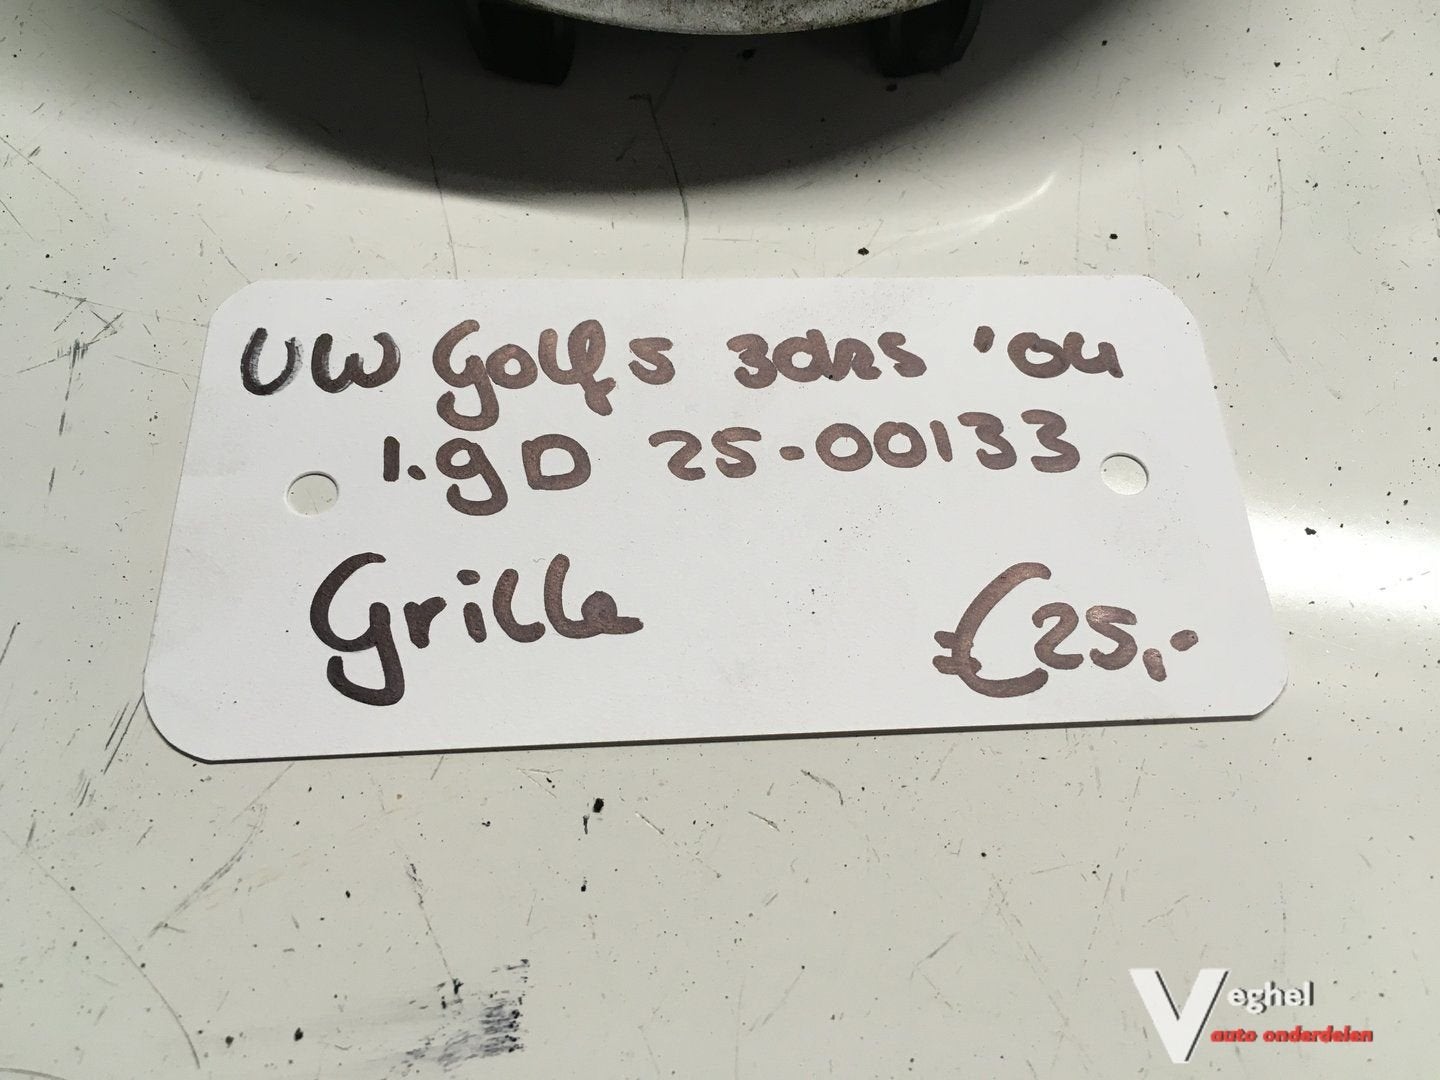 VW Golf 5 3drs '04
1.9D 25-00133
Grille €25,-
Veghel
auto onderdelen